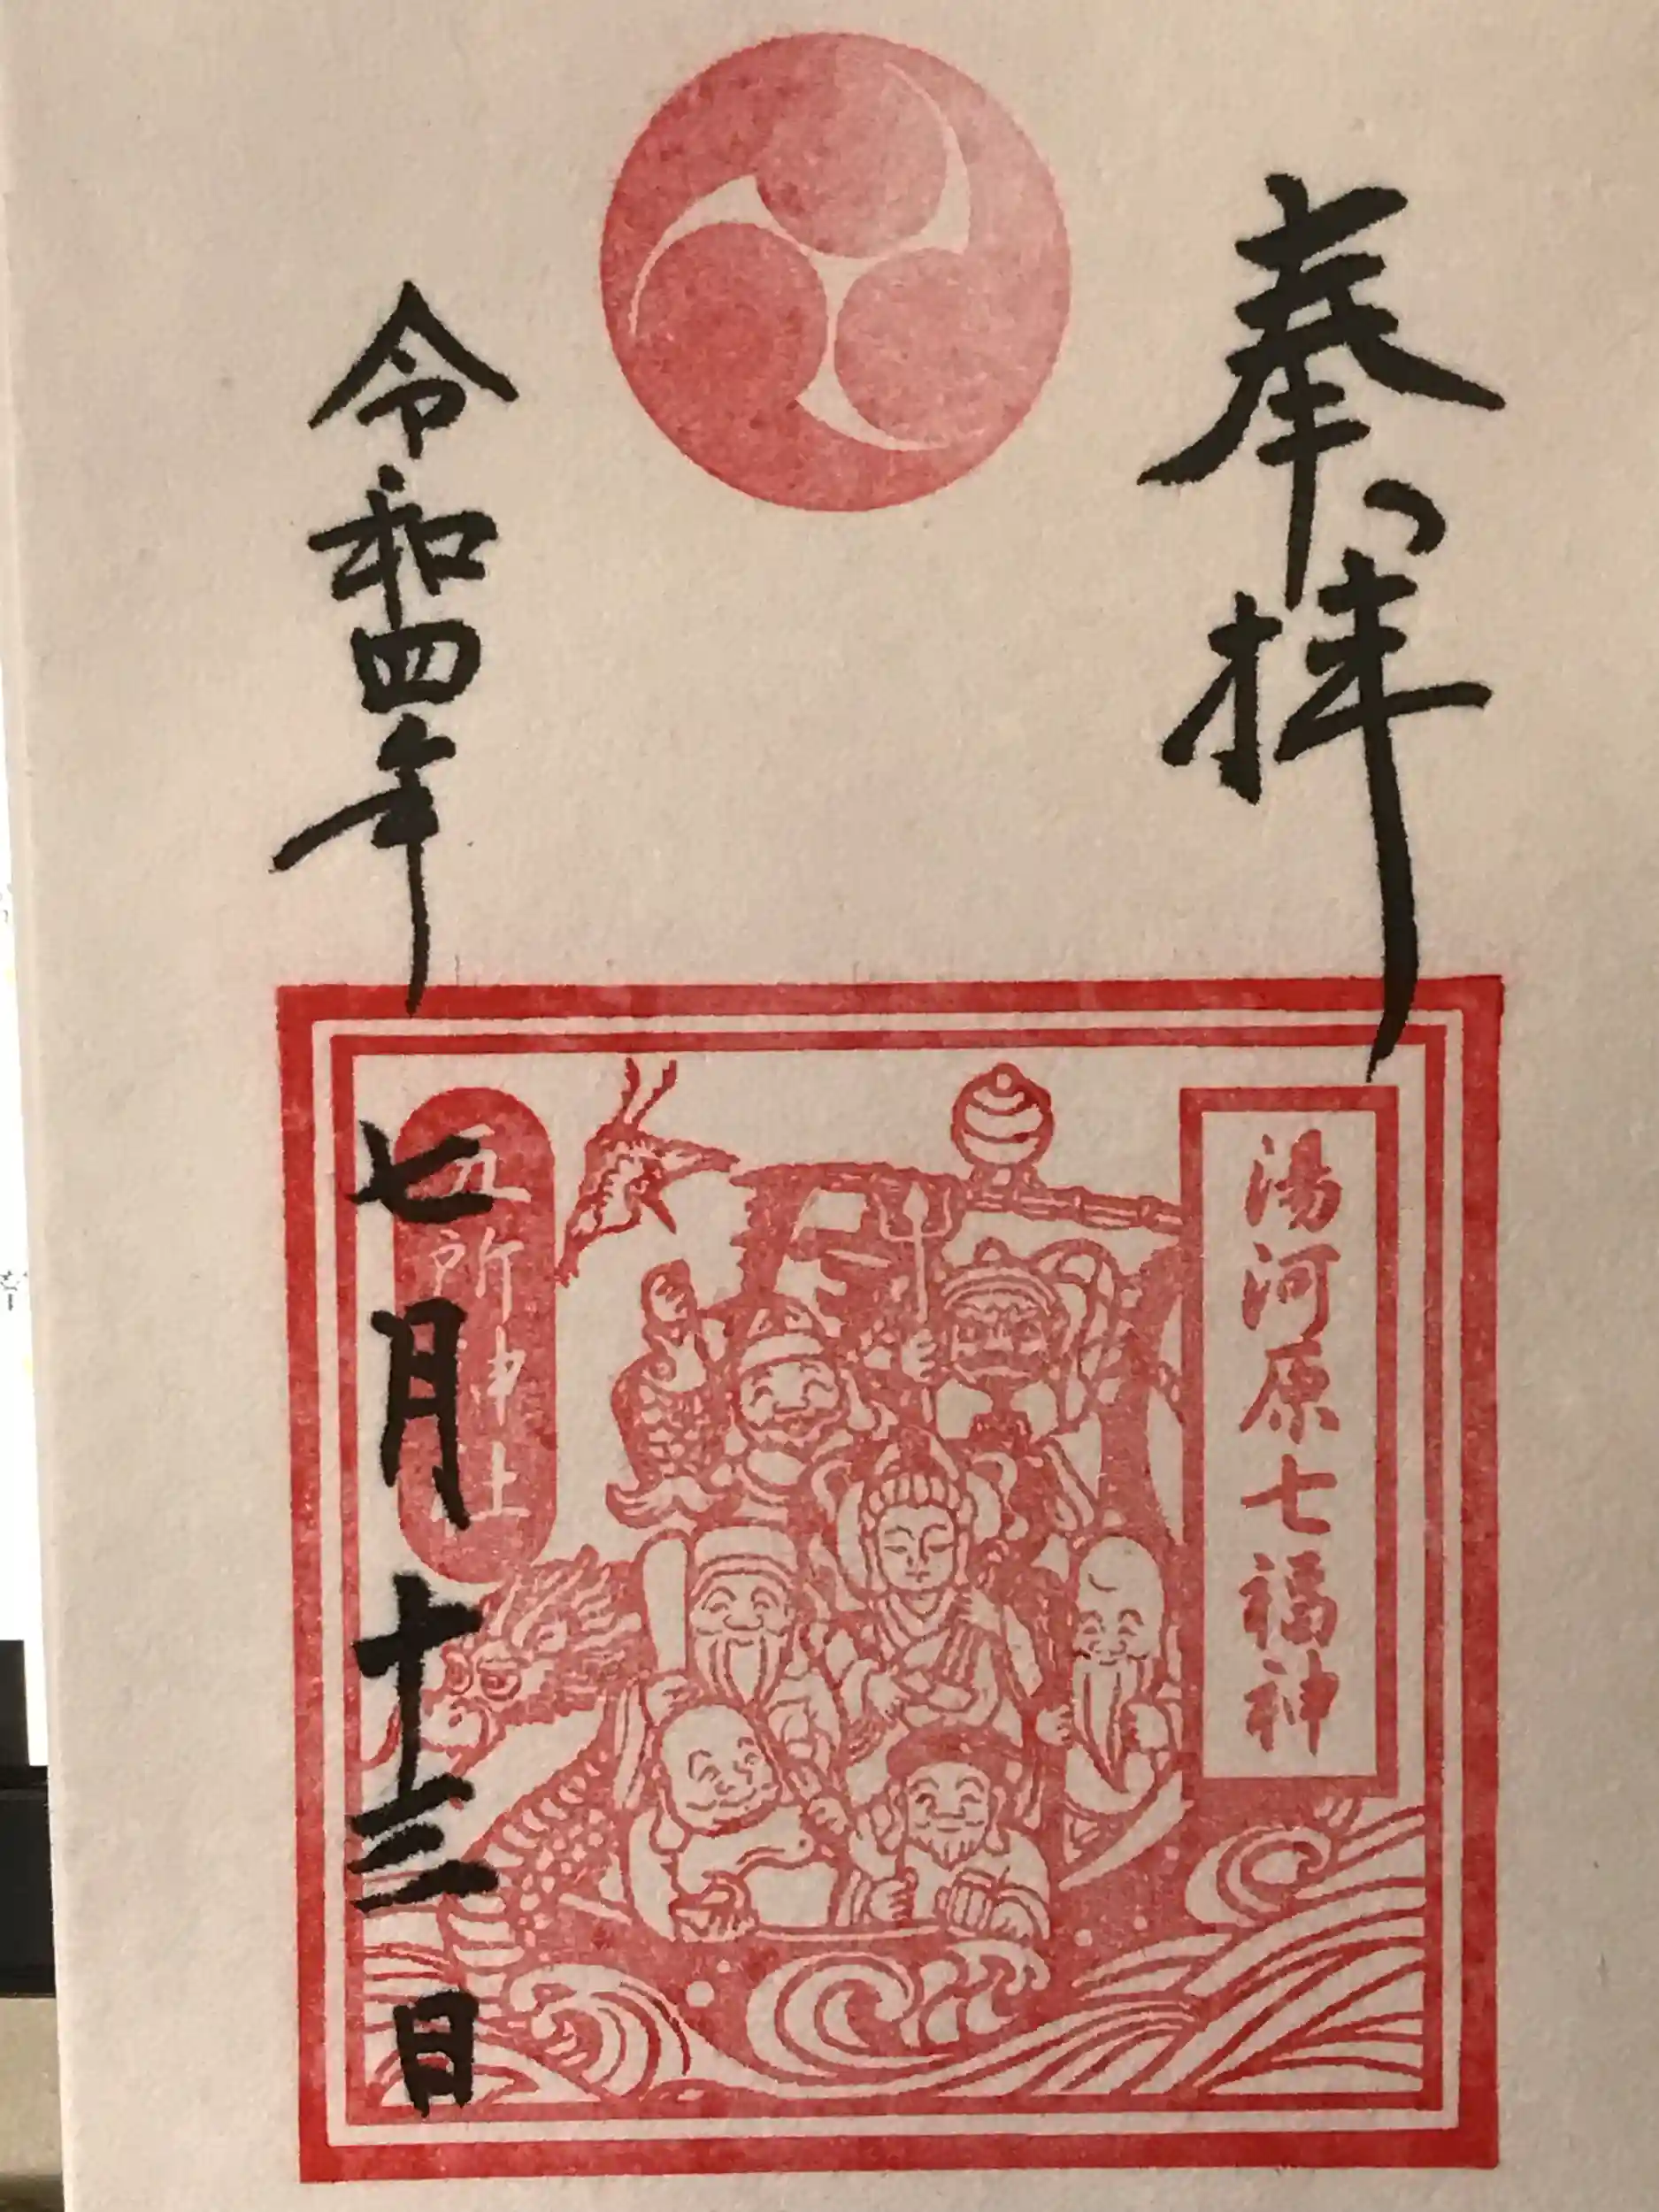 奉拝
湯河原七福神
五所神社
令和四年
七月十三日